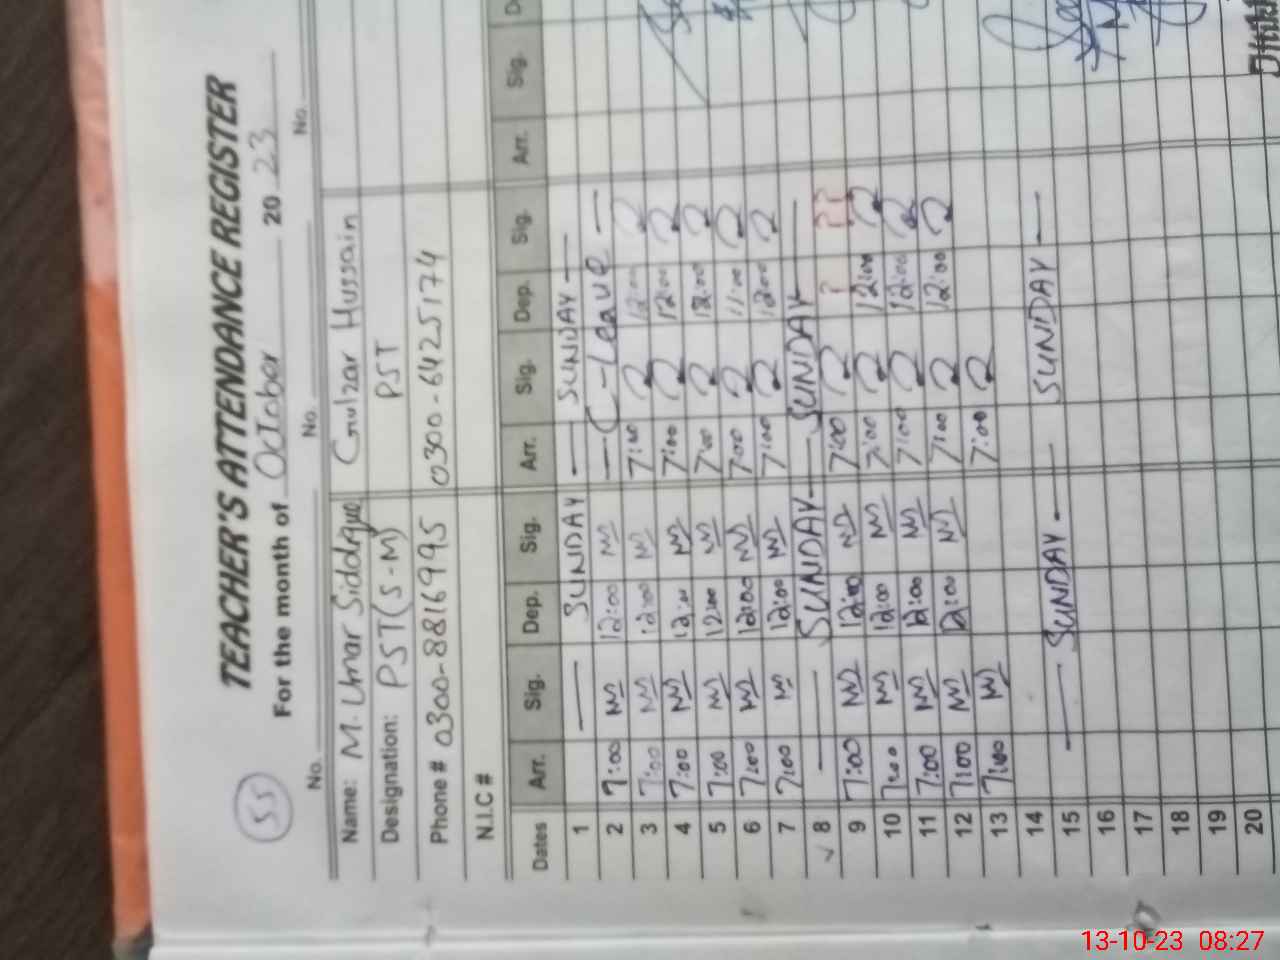 55
TEACHER'S ATTENDANCE REGISTER
For the month of October 20 23
No. No. No. No.
Name: M. Umar Siddique Gulzar Hussain
Designation: PST (S-M) PST
Phone # 0300-8816995 0300-6425174
N.I.C #
Dates Arr. Sig. Dep. Sig. Arr. Sig. Dep. Sig. Arr. Sig.
1 — SUNDAY — SUNDAY —
2 7:00 12:00 — C-Leave —
3 7:00 12:00 7:00 12:00
4 7:00 12:00 7:00 12:00
5 7:00 12:00 7:00 12:00
6 7:00 12:00 7:00 11:00
7 7:00 12:00 7:00 12:00
8 — SUNDAY — SUNDAY —
9 7:00 12:00 7:00 ? ??
10 7:00 12:00 7:00 12:00
11 7:00 12:00 7:00 12:00
12 7:00 12:00 7:00 12:00
13 7:00 7:00
14
15 — SUNDAY — SUNDAY —
16
17
18
19
20
13-10-23 08:27